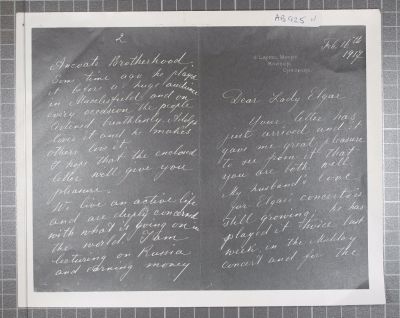 AB925 v
4 Laurel Mount
Bowdon,
Cheshire.
Feb. 16th
1917
Dear Lady Elgar
Your letter has
just arrived and it
gave me great pleasure
to see from it that
you are both well.
My husband's love
for Elgar concerto is
still growing; he has
played it twice last
week, in the Midday
concert and for the
2
Ancoats Brotherhood.
Some time ago he played
it before a huge audience
in Macclesfield and on
every occasion the people
listened breathlessly. Adolph
loves it and he makes
others love it.
I hope that the enclosed
letter will give you
pleasure.
We live an active life
and are deeply concerned
with what is going on in
the world. I am
lecturing on Russia
and earning money